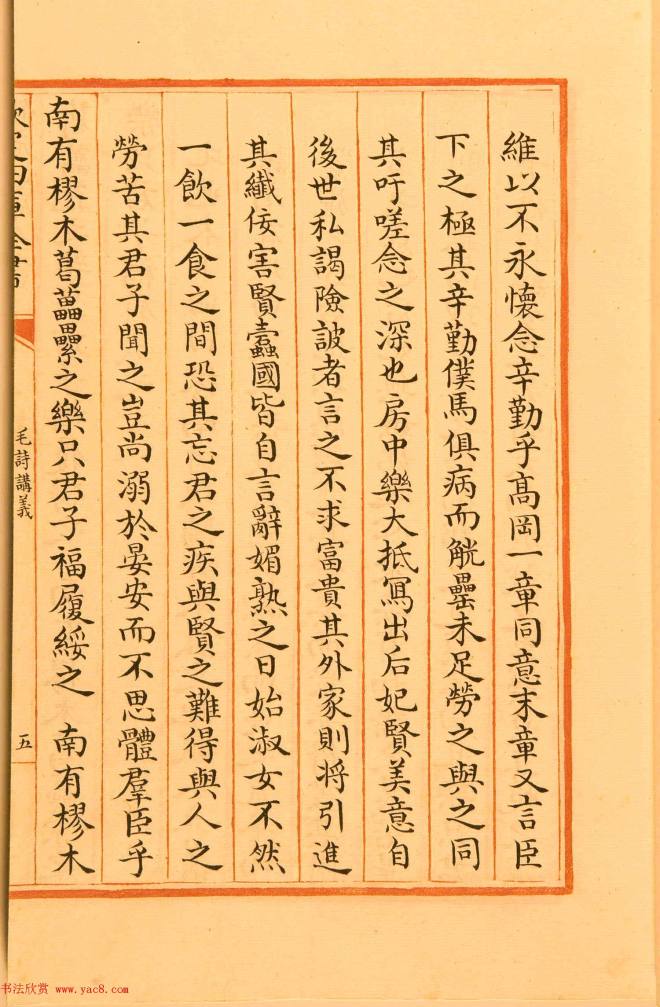 維以不永懷念辛勤乎髙岡一章同意末章又言臣
下之極其辛勤僕馬俱病而觥罍未足勞之與之同
其吁嗟念之深也房中樂大抵寫出后妃賢美意自
後世私謁險詖者言之不求富貴其外家則将引進
其纎佞害賢蠧國皆自言辭媚熟之日始淑女不然
一飲一食之間恐其忘君之疾與賢之難得與人之
勞苦其君子聞之豈尚溺於晏安而不思體羣臣乎
南有樛木葛藟纍之樂只君子福履綏之　南有樛木
毛詩講義
五
书法欣赏 www.yac8.com